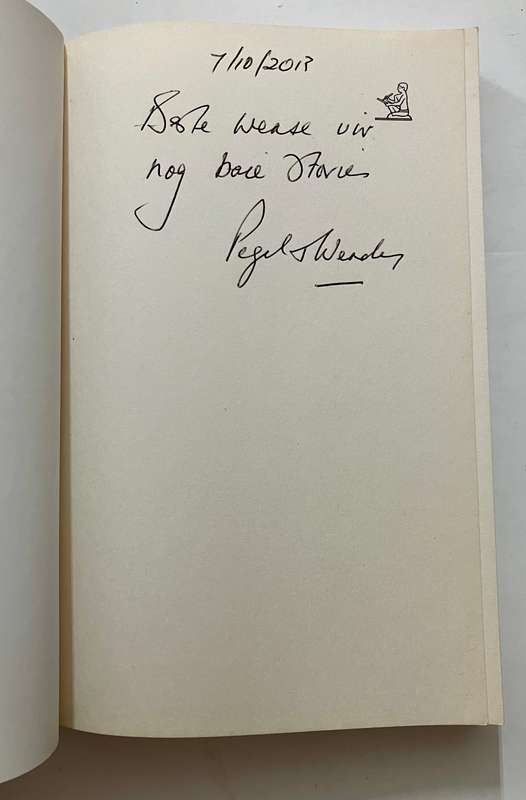 7/10/2013
Beste wense vir
nog baie Stories
Pegel & Wendy